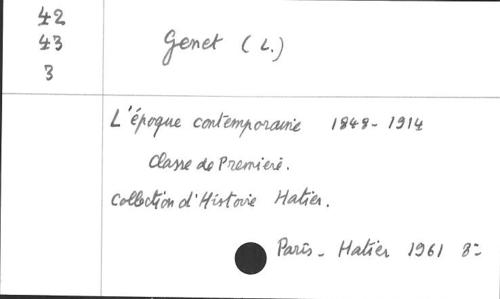 42
43
3
Genet (L.)
L'époque contemporaine 1848-1914
Classe de Première.
Collection d'Histoire Hatier.
Paris - Hatier 1961 8º